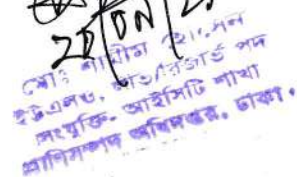 মোঃ শামীম হোসেন
ইউএলও, লিভ/রিজার্ভ পদ
সংযুক্তি- আইসিটি শাখা
প্রাণিসম্পদ অধিদপ্তর, ঢাকা।